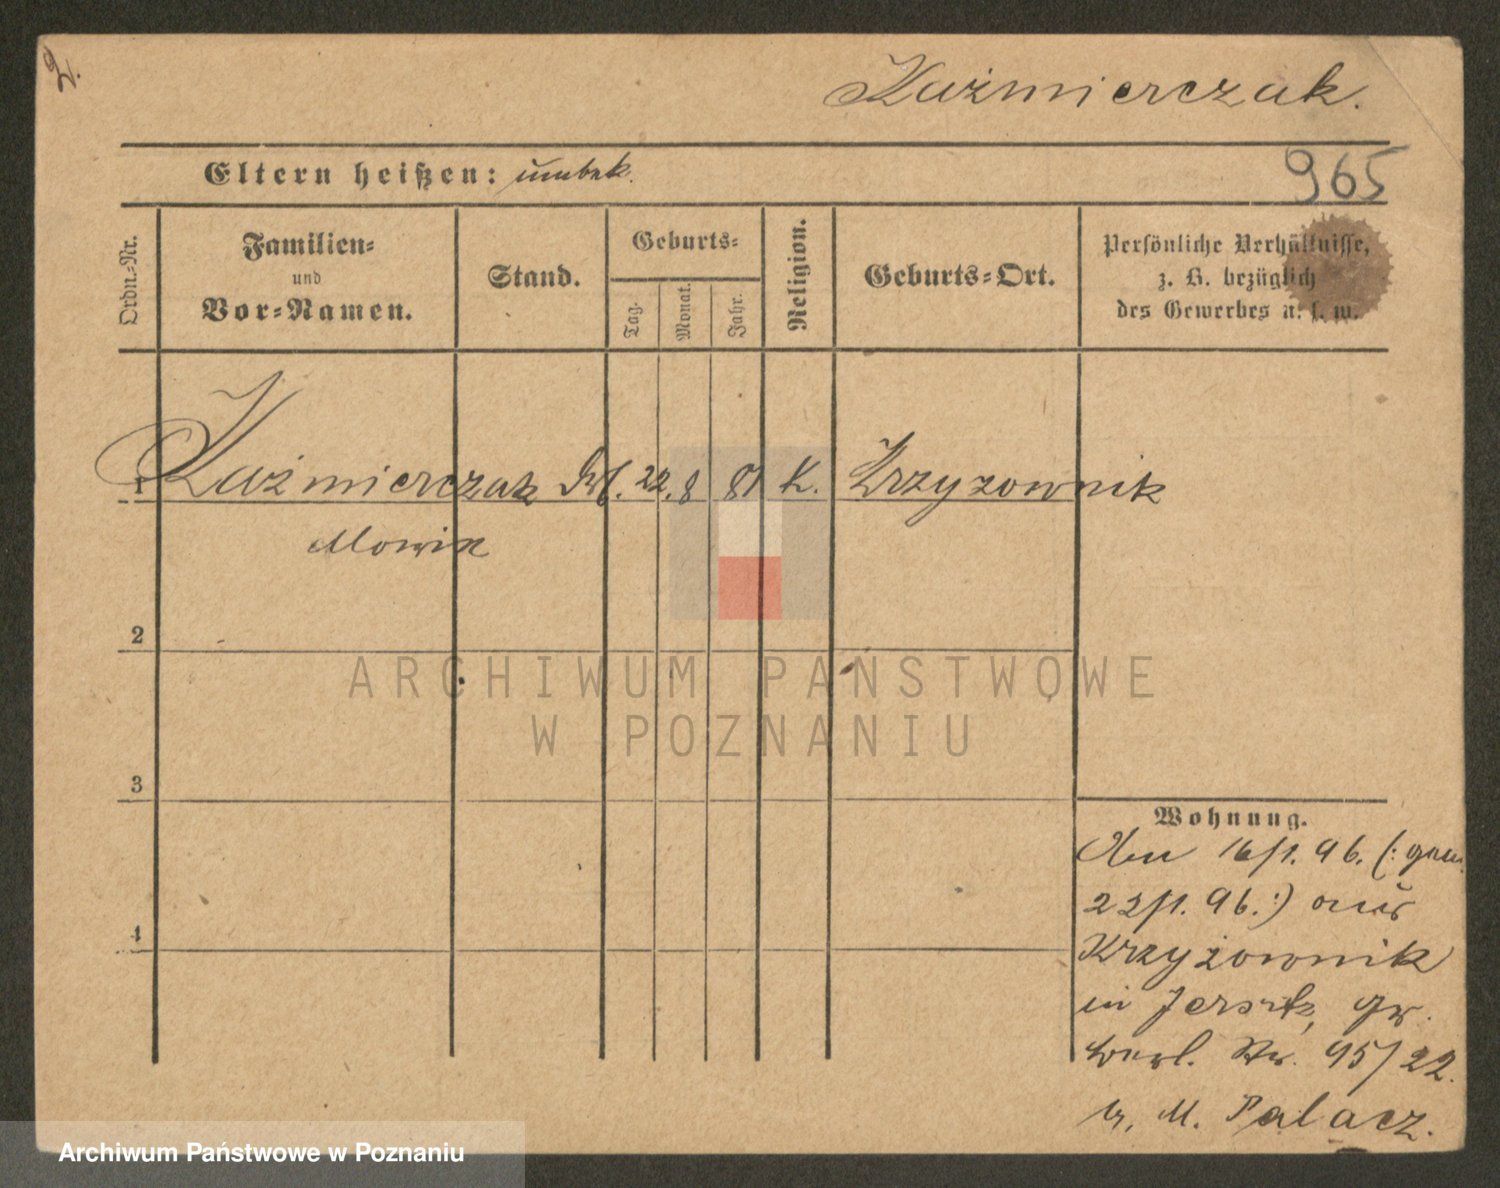 2.
Kaźmierczak.
Eltern heißen: unbek.
965
Ordn.-Nr.
Familien-
und
Vor-Namen.
Stand.
Geburts-
Tag.
Monat.
Jahr.
Religion.
Geburts-Ort.
Persönliche Verhältnisse,
z. B. bezüglich
des Gewerbes u. s. w.
1 Kaźmierczak 22. 8 81 K. Krzyzownik
2
3
4
Wohnung.
16/1. 96. (:gem.
22/1. 96.:) aus
Krzyżownik
in Jersitz, Gr.
Berl. Str. 95/22.
b. M. Palacz.
ARCHIWUM PAŃSTWOWE
W POZNANIU
Archiwum Państwowe w Poznaniu